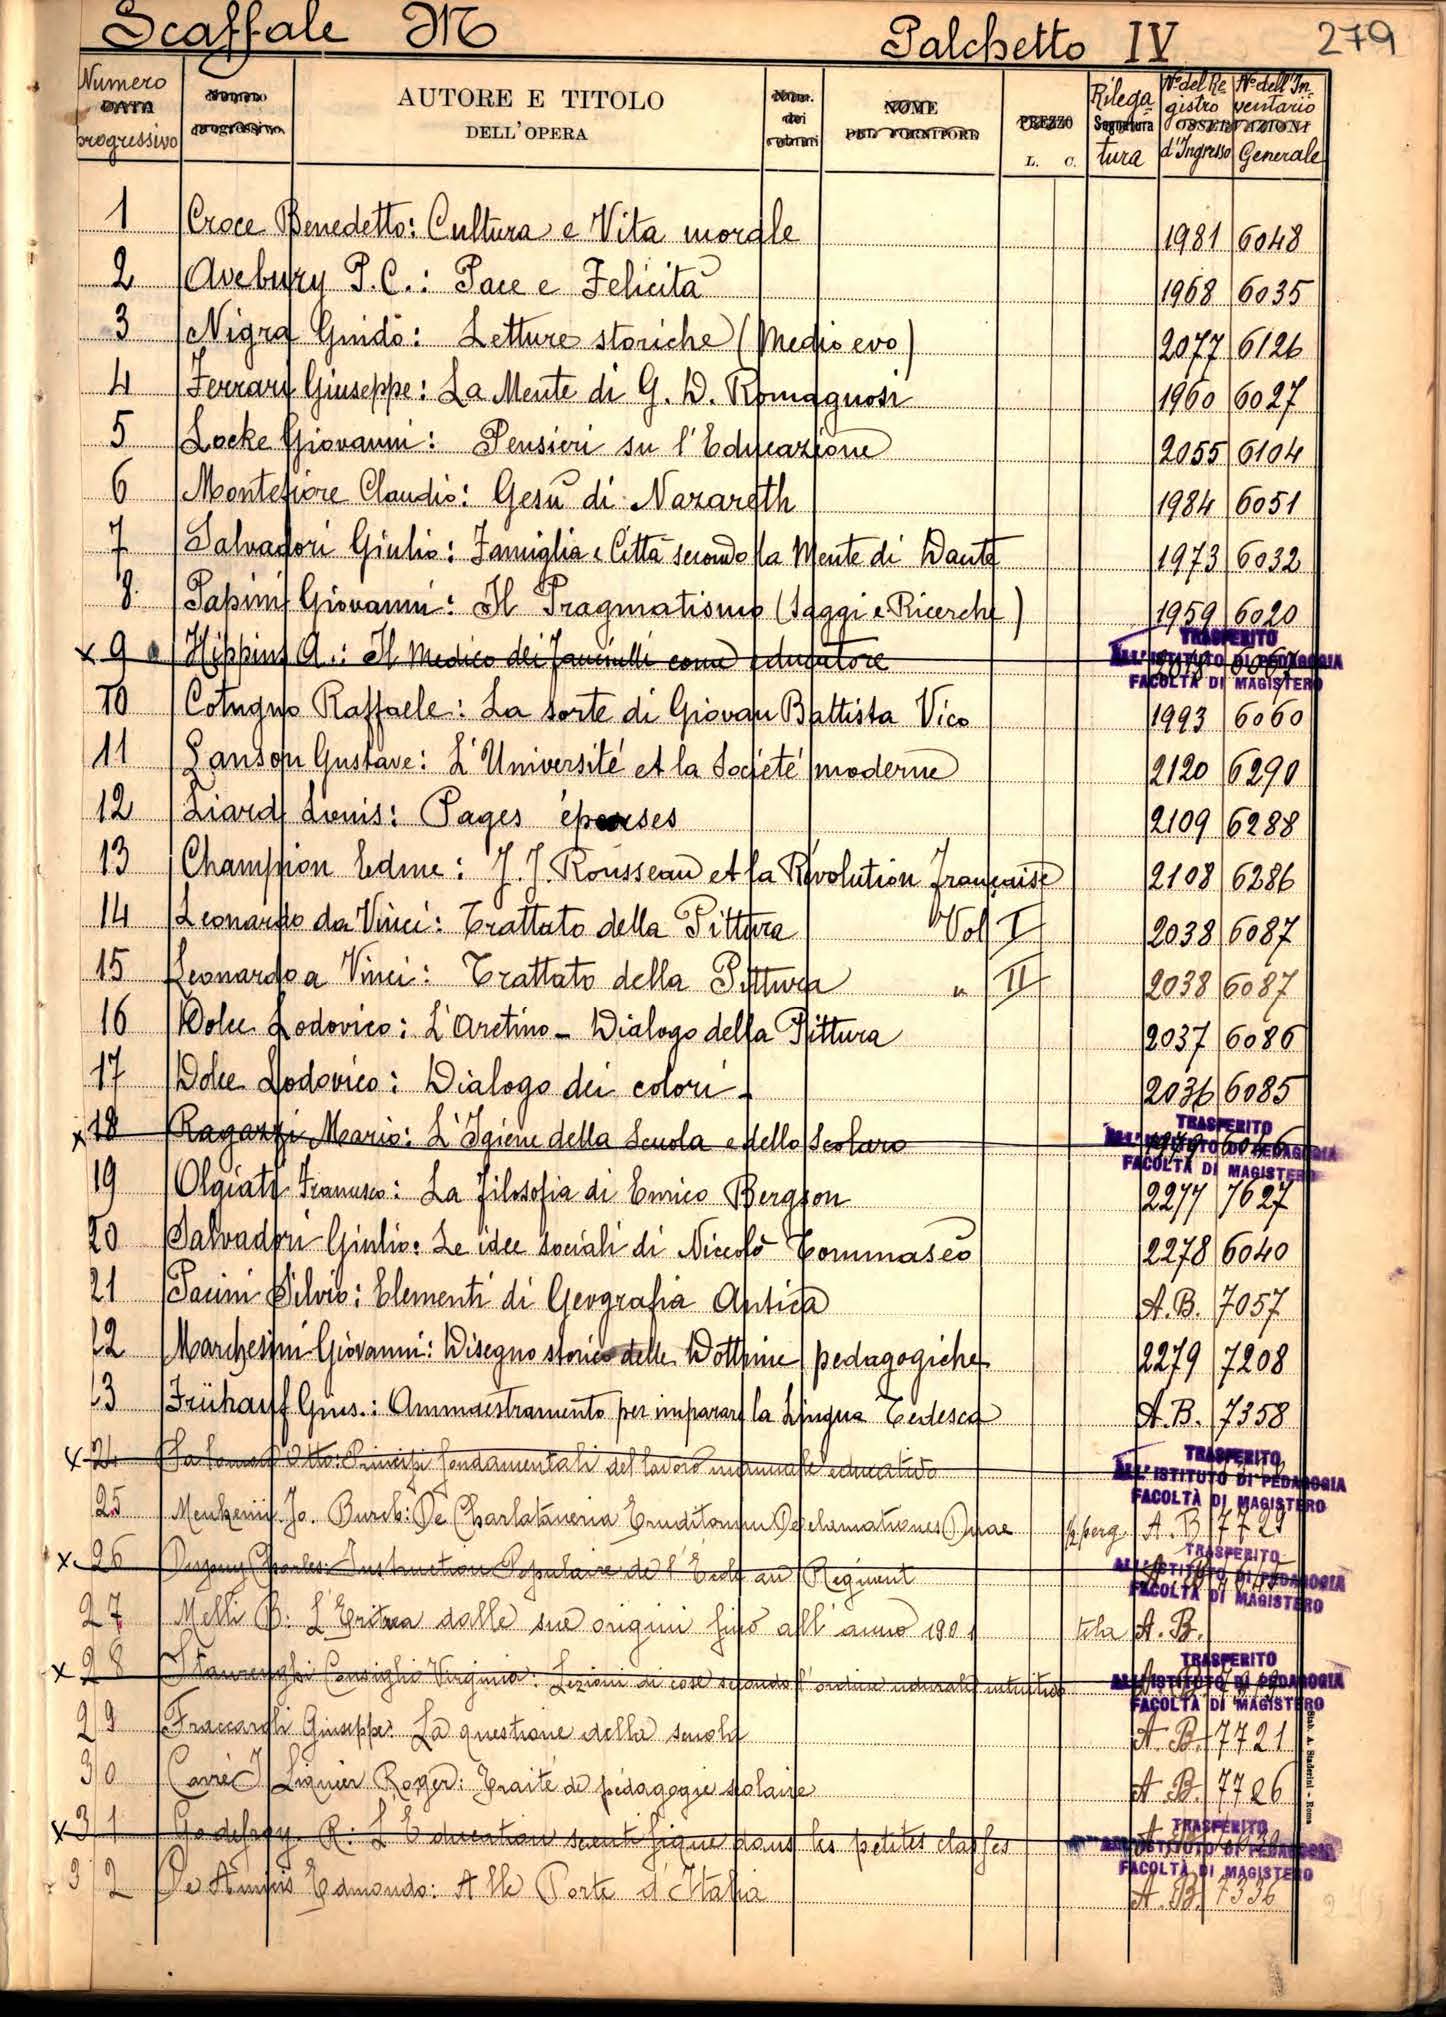 Scaffale M Palchetto IV 279
Numero progressivo AUTORE E TITOLO DELL'OPERA NOME DEL FORNITORE PREZZO L. C. Rilegatura Segnatura N° del Registro d'Ingresso N° dell'Inventario Generale OSSERVAZIONI
1 Croce Benedetto: Cultura e Vita morale 1981 6048
2 Avebury P.C.: Pace e Felicità 1968 6035
3 Nigra Guido: Letture storiche (Medio evo) 2077 6126
4 Ferrari Giuseppe: La Mente di G. D. Romagnosi 1960 6027
5 Locke Giovanni: Pensieri su l'Educazione 2055 6104
6 Montefiore Claudio: Gesù di Nazareth 1984 6051
7 Salvadori Giulio: Famiglia e Città secondo la Mente di Dante 1973 6032
8. Papini Giovanni: Il Pragmatismo (Saggi e Ricerche) 1959 6020
x 9 Hippius A.: Il Medico dei fanciulli come educatore
TRASFERITO
ALL'ISTITUTO DI PEDAGOGIA
FACOLTÀ DI MAGISTERO
10 Cotugno Raffaele: La sorte di Giovan Battista Vico 1993 6060
11 Lanson Gustave: L'Université et la Société moderne 2120 6290
12 Liard Louis: Pages éparses 2109 6288
13 Champion Edme: J. J. Rousseau et la Révolution Française 2108 6286
14 Leonardo da Vinci: Trattato della Pittura Vol I 2038 6087
15 Leonardo a Vinci: Trattato della Pittura " II 2038 6087
16 Dolce Lodovico: L'Aretino - Dialogo della Pittura 2037 6086
17 Dolce Lodovico: Dialogo dei colori - 2036 6085
x 18 Ragazzi Mario: L'Igiene della Scuola e dello Scolaro
TRASFERITO
ALL'ISTITUTO DI PEDAGOGIA
FACOLTÀ DI MAGISTERO
19 Olgiati Francesco: La filosofia di Enrico Bergson 2277 7627
20 Salvadori Giulio: Le idee sociali di Niccolò Tommaseo 2278 6040
21 Pacini Silvio: Elementi di Geografia Antica A.B. 7057
22 Marchesini Giovanni: Disegno storico delle Dottrine pedagogiche 2279 7208
23 Frühauf Gius.: Ammaestramento per imparare la Lingua Tedesca A.B. 7358
x 24 Salomon Otto: Principi fondamentali del lavoro manuale educativo
TRASFERITO
ALL'ISTITUTO DI PEDAGOGIA
FACOLTÀ DI MAGISTERO
25 Menkenii Jo. Burch: De Charlataneria Eruditorum Declamationes Duae perg. A.B 7729
x 26 Charles: Instruction Populaire de l'École au Régiment
TRASFERITO
ALL'ISTITUTO DI PEDAGOGIA
FACOLTÀ DI MAGISTERO
27 Melli B: L'Eritrea dalle sue origini fino all'anno 1901 tela A.B.
x 28 Staurenghi Consiglio Virginia: Lezioni di cose secondo l'ordine naturale intuitivo
TRASFERITO
ALL'ISTITUTO DI PEDAGOGIA
FACOLTÀ DI MAGISTERO
29 Fraccaroli Giuseppe: La questione della scuola A.B. 7721
30 Carré I Liquier Roger: Traité de pédagogie scolaire A.B. 7726
x 31 Godefroy R: L'Education scientifique dans les petites classes
TRASFERITO
ALL'ISTITUTO DI PEDAGOGIA
FACOLTÀ DI MAGISTERO
32 De Amicis Edmondo: Alle Porte d'Italia A.B. 7336
Stab. A. Staderini - Roma